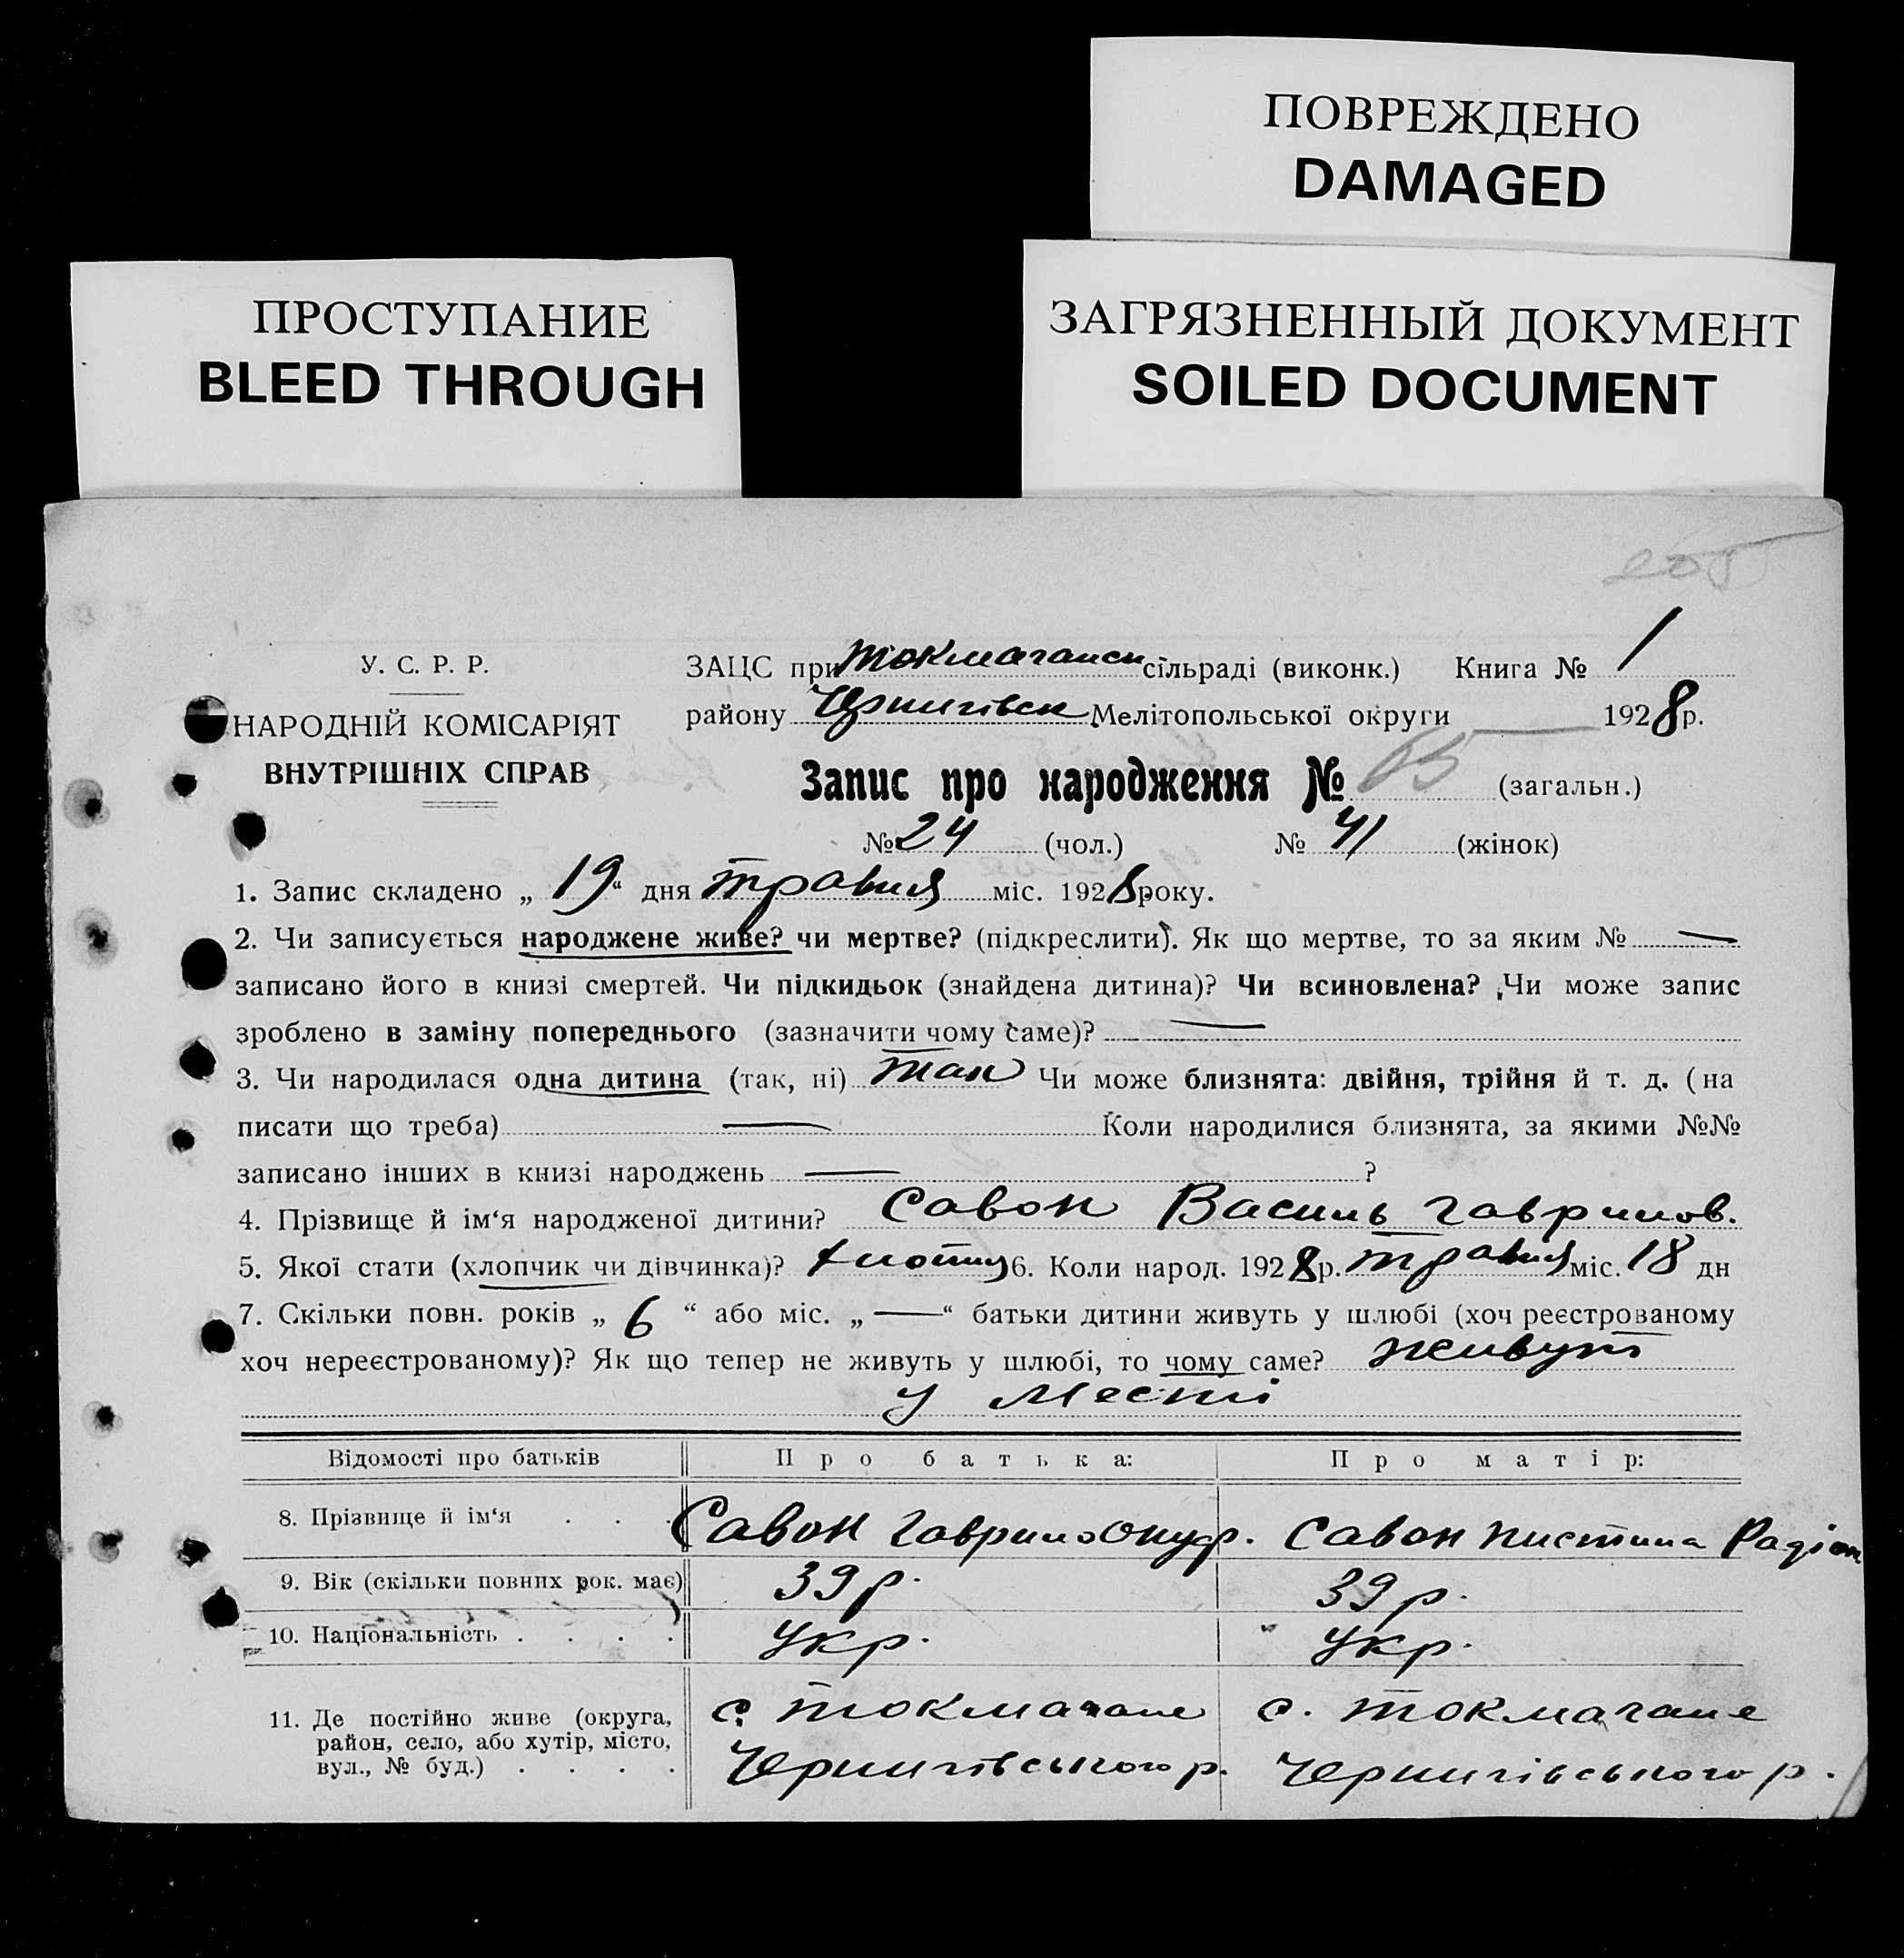 ПОВРЕЖДЕНО
DAMAGED
ПРОСТУПАНИЕ
BLEED THROUGH
ЗАГРЯЗНЕННЫЙ ДОКУМЕНТ
SOILED DOCUMENT
У. С. Р. Р.
НАРОДНІЙ КОМІСАРІЯТ
ВНУТРІШНІХ СПРАВ
ЗАЦС при Токмачанск сільраді (виконк.) Книга № 1
району Чернигівск Мелітопольської округи 1928 р.
Запис про народження № 65 (загальн.)
№ 24 (чол.) № 41 (жінок)
1. Запис складено „ 19 “ дня травня міс. 1928 року.
2. Чи записується народжене живе? чи мертве? (підкреслити). Як що мертве, то за яким № —
записано його в книзі смертей. Чи підкидьок (знайдена дитина)? Чи всиновлена? Чи може запис
зроблено в заміну попереднього (зазначити чому саме)? —
3. Чи народилася одна дитина (так, ні) так Чи може близнята: двійня, трійня й т. д. (на
писати що треба) — Коли народилися близнята, за якими №№
записано інших в книзі народжень — ?
4. Прізвище й ім‘я народженої дитини? Савон Василь Гаврилов.
5. Якої стати (хлопчик чи дівчинка)? 6. Коли народ. 1928 р. травня міс. 18 дн
7. Скільки повн. років „ 6 “ або міс. „ — “ батьки дитини живуть у шлюбі (хоч реєстрованому
хоч нереєстрованому)? Як що тепер не живуть у шлюбі, то чому саме? живут
у месті
Відомості про батьків Про батька: Про матір:
8. Прізвище й ім‘я . . . Савон Гаврило Онуф. Савон Пистина Радіон
9. Вік (скільки повних рок. має) 39 р. 39 р.
10. Національність . . . . Укр. Укр.
11. Де постійно живе (округа, район, село, або хутір, місто, вул., № буд.) . . . .
с. Токмачане с. Токмачане
Чернигівського р. Чернигівського р.